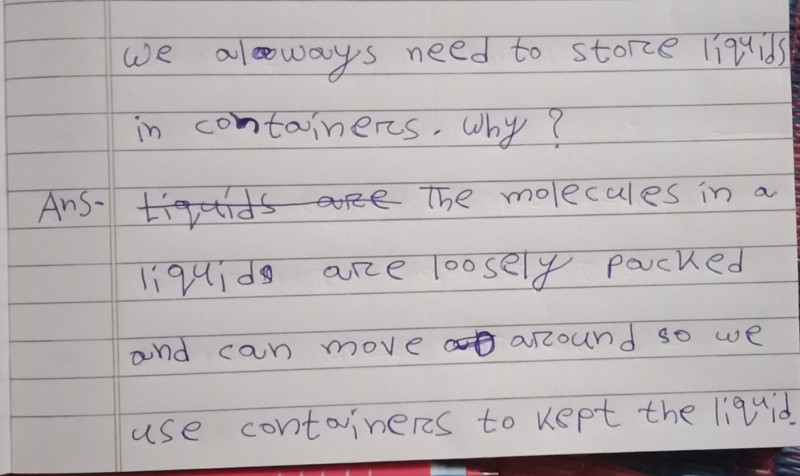 we always need to store liquids
in containers. Why?
Ans- Liquids are The molecules in a
liquids are loosely packed
and can move around so we
use containers to kept the liquid.